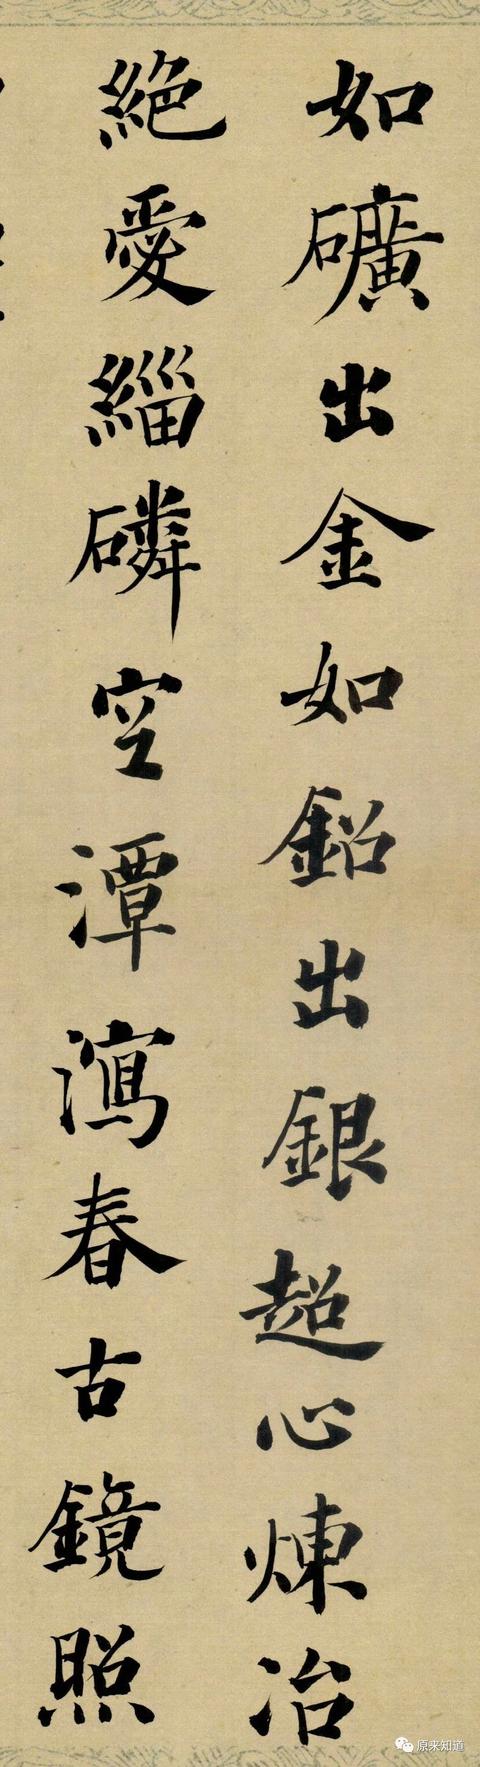 如礦出金如鉛出銀超心煉冶
絕愛緇磷空潭瀉春古鏡照
原来知道